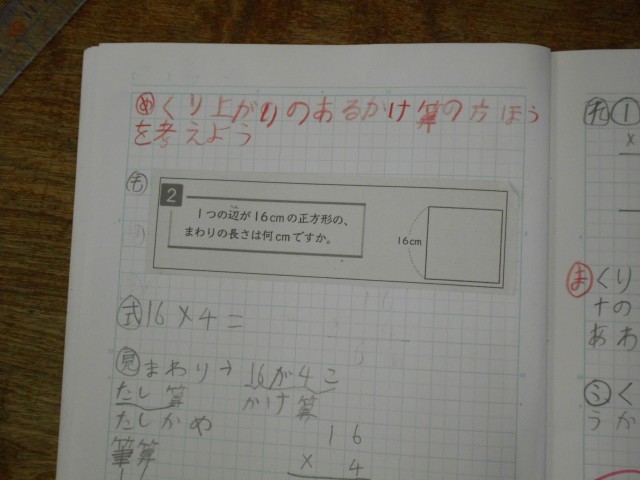 めくり上がりのあるかけ算の方ほう
を考えよう
も
2
1つの辺が16cmの正方形の、
まわりの長さは何cmですか。
16cm
式 16×4=
見 まわり→ 16が4こ
たし算 かけ算
たしかめ
筆算
16
× 4
れ ①
×
ま くり
十の
あわ
く
うか